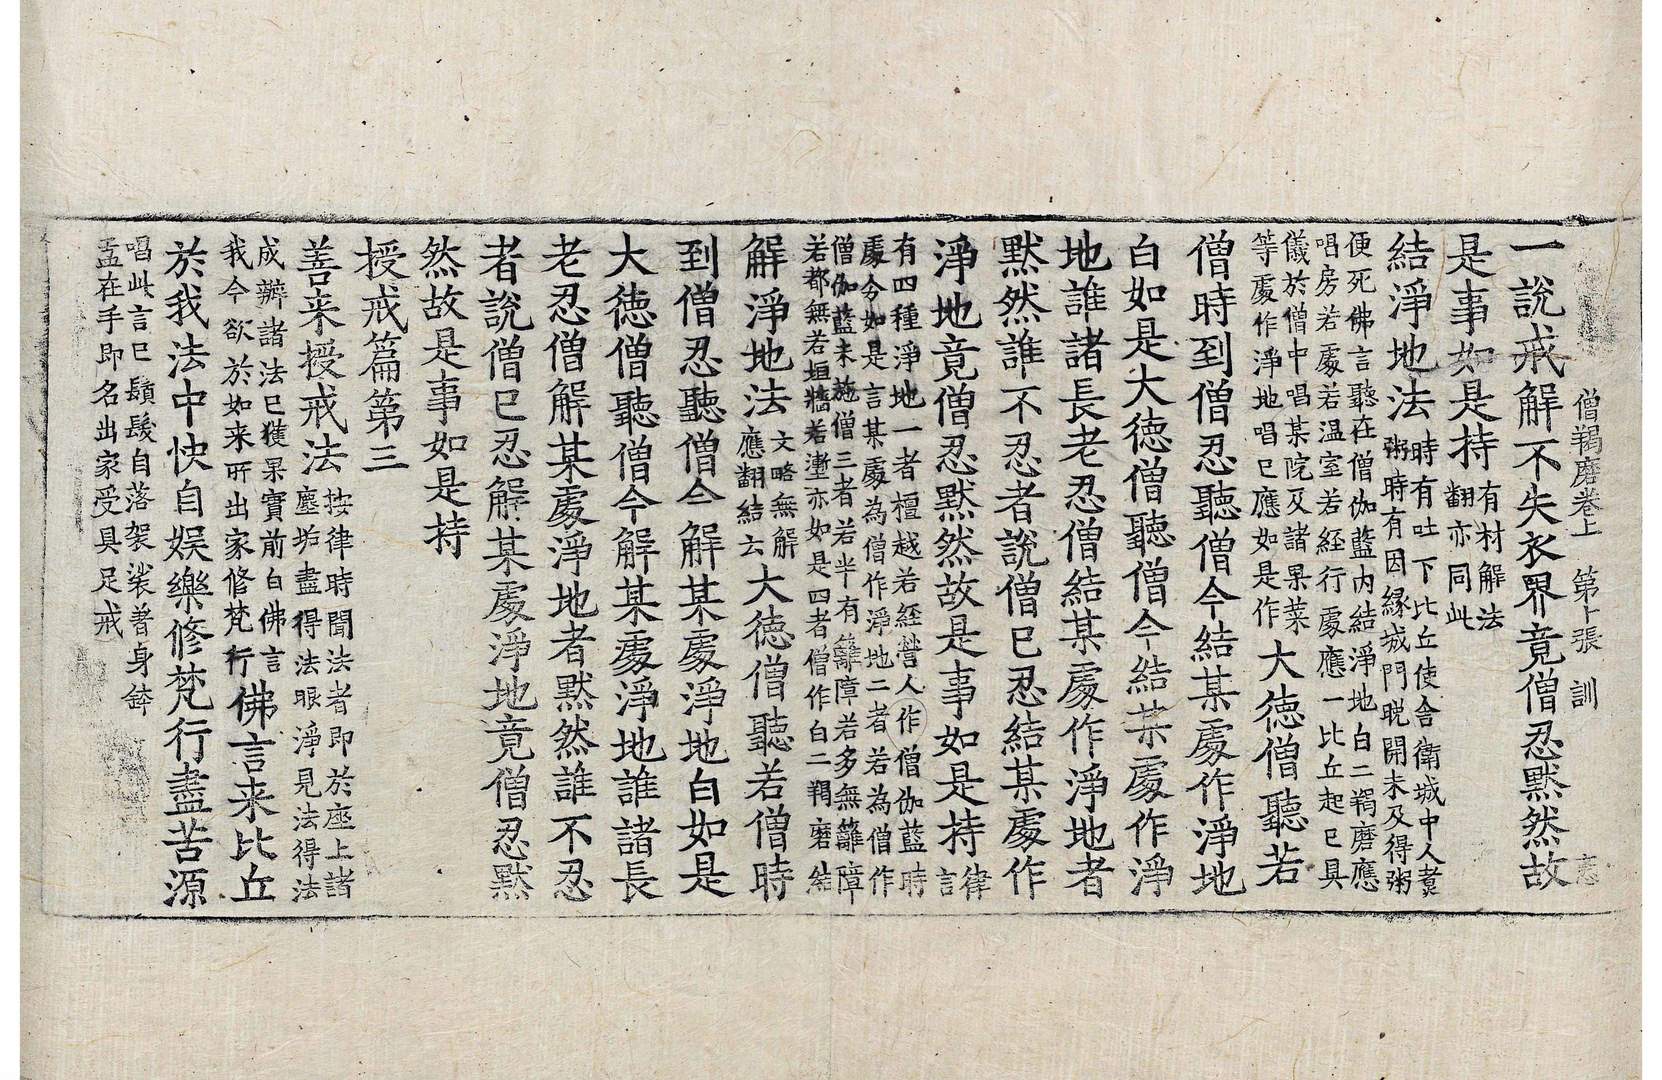 僧羯磨卷上 第十張 訓
一說戒解不失衣界竟僧忍默然故
是事如是持有材解法
翻亦同此
結淨地法時有吐下比丘使舍衛城中人煑
粥時有因緣城門晚開未及得粥
便死佛言聽在僧伽藍內結淨地白二羯磨應
唱房若處若溫室若經行處應一比丘起已具
儀於僧中唱某院及諸果菜
等處作淨地唱已應如是作大德僧聽若
僧時到僧忍聽僧今結某處作淨地
白如是大德僧聽僧今結某處作淨
地誰諸長老忍僧結某處作淨地者
默然誰不忍者說僧已忍結某處作
淨地竟僧忍默然故是事如是持律
言
有四種淨地一者檀越若經營人作僧伽藍時
處分如是言某處為僧作淨地二者若為僧作
僧伽藍未施僧三者若半有籬障若多無籬障
若都無若垣牆若壍亦如是四者僧作白二羯磨結
解淨地法文略無解
應翻結云大德僧聽若僧時
到僧忍聽僧今解某處淨地白如是
大德僧聽僧今解某處淨地誰諸長
老忍僧解某處淨地者默然誰不忍
者說僧已忍解某處淨地竟僧忍默
然故是事如是持
授戒篇第三
善来授戒法按律時聞法者即於座上諸
塵垢盡得法眼淨見法得法
成辦諸法已獲果實前白佛言
我今欲於如来所出家修梵行佛言来比丘
於我法中快自娛樂修梵行盡苦源
唱此言已鬚髮自落袈裟著身鉢
盂在手即名出家受具足戒